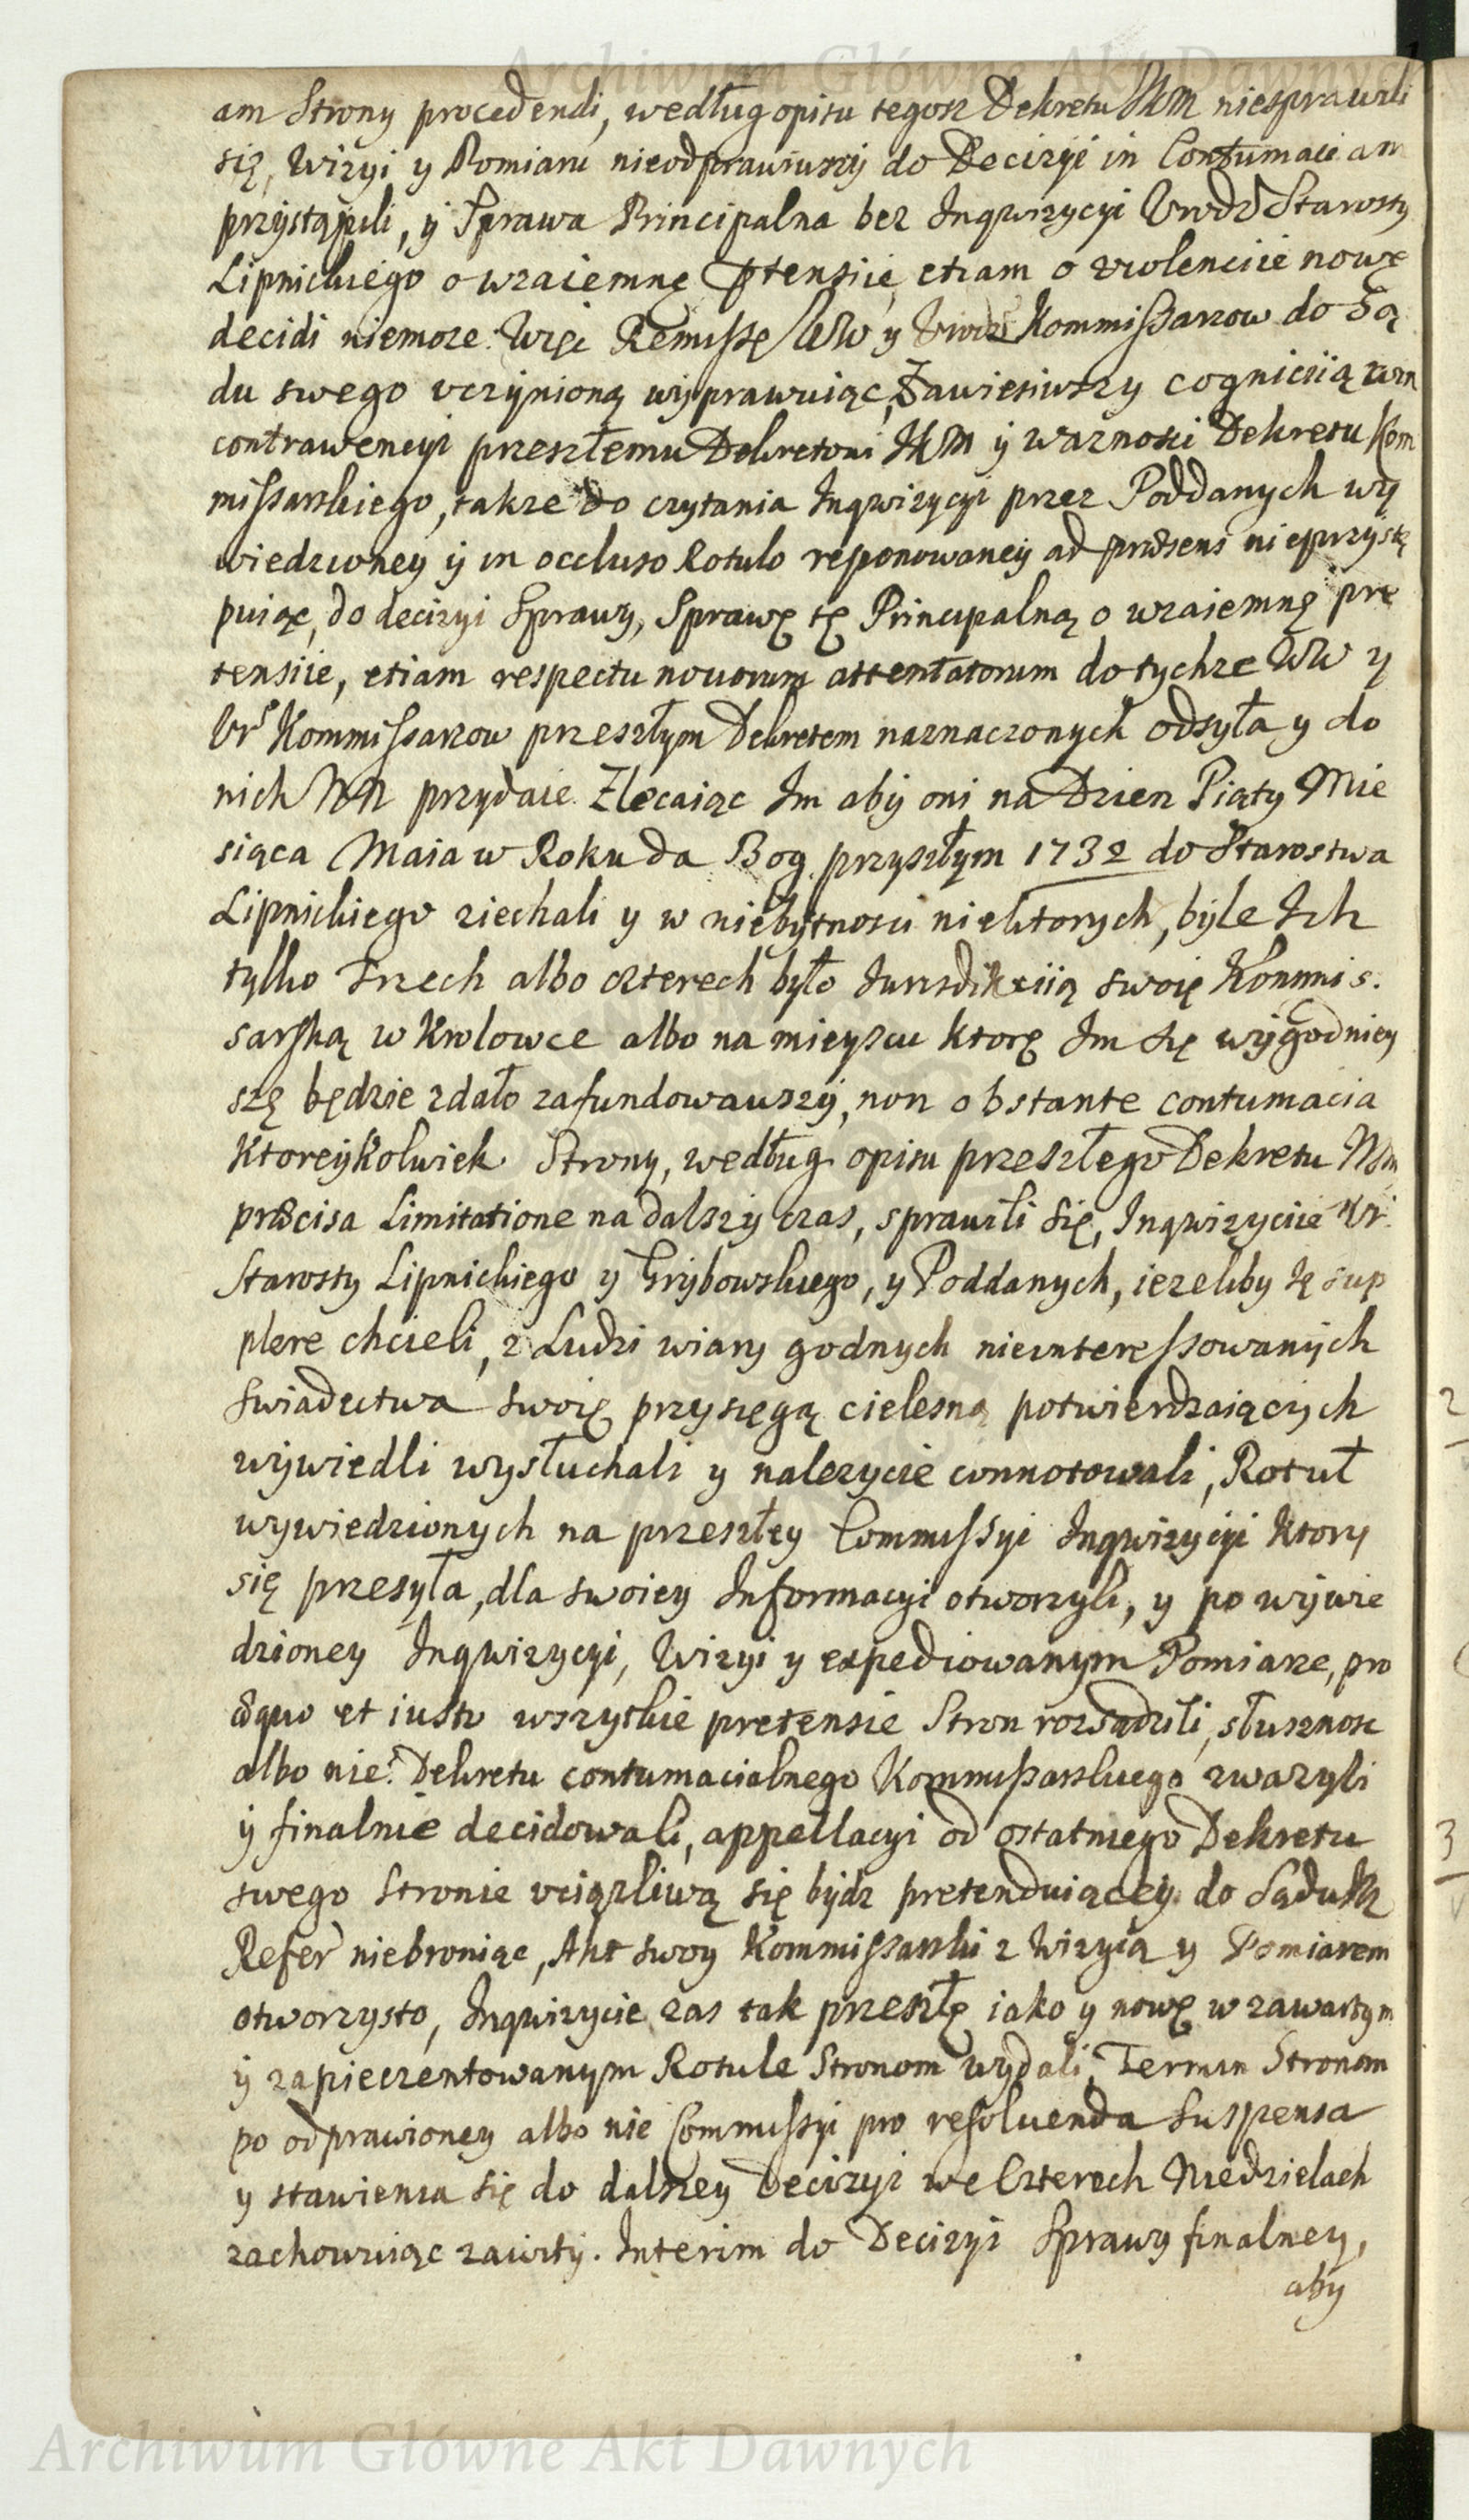 Archiwum Główne Akt Dawnych
am Strony procedendi, według opisu tegosz Dekretu JKM niesprawili
się, Wizyi y Pomiaru nieodprawiwszy do Decizyi in Contumaciam
przystąpili, y Sprawa Principalna bez Inqwizycyi Urodz Starosty
Lipnickiego o wzaiemnę Ptensiie, etiam o violenciie nowę
decidi niemoże. Więc Remissę WW y Urodz Kommissarzow do Są
du swego uczynioną wyprawuiąc, Zawiesiwszy cogniciią wzn
contrawencyi przeszłemu Dekretowi JKM y ważności Dekretu Kom
missarskiego, także do czytania Inqwizycyi przez Poddanych wy
wiedzioney y in occluso Rotulo reponowaney ad præsens nieprzystę
puiąc, do decizyi Sprawy, Sprawę tę Principalną o wzaiemnę prę
tensiie, etiam respectu novorum attentatorum do tychże WW y
Ur Kommissarzow przeszłym Dekretem naznaczonych odsyła y do
nich NN przydaie. Zlecaiąc Im aby oni na Dzien Piąty Mie
siąca Maia w Roku da Bog przyszłym 1732 do Starostwa
Lipnickiego ziechali y w niebytnosci niektorych, byle Ich
tylko Trzech albo czterech było Jurisdikciią swoię Kommis.
sarską w Krolowce albo na mieyscu ktorę Im się wygodniey
szę będzie zdało zafundowawszy, non obstante contumacia
Ktoreykolwiek Strony, według opisu przeszłego Dekretu Nm
præcisa Limitatione na dalszy czas, sprawili się, Inqwizyciie Ur.
Starosty Lipnickiego y Grybowskiego, y Poddanych, ieżeliby tę sup
plere chcieli, z Ludzi wiary godnych nieinteressowanych
Swiadectwa swoię przysięgą cielesną potwierdzaiących
wywiedli wysłuchali y należycie connotowali, Rotuł
wywiedzionych na przeszłey Commissyi Inqwizycyi Ktory
się przesyła, dla swoiey Informacyi otworzyli, y po wywie
dzioney Inqwizycyi, Wizyi y expediowanym Pomiarze, pro
æquo et iusto wszytkie pretensie Stron rozsądzili, słusznosc
albo nie: Dekretu contumacialnego Kommissarskiego zważyli
y finalnie decidowali, appellacyi od ostatniego Dekretu
swego Stronie uciążliwą się bydz pretenduiącey do Sądu
Refer niebroniąc, Akt swoy Kommissarski z Wizyią y Pomiarem
otworzysto, Inqwizycie zas tak przeszłę iako y nowę w zawartym
y zapieczentowanym Rotule Stronom wydali, Termin Stronom
po odprawioney albo nie Commissyi pro resoluenda Suspensa
y stawienia się do dalszey Decizyi we Czterech Niedzielach
zachowuiąc zawity. Interim do Decizyi Sprawy finalney,
aby
2
3
Archiwum Główne Akt Dawnych